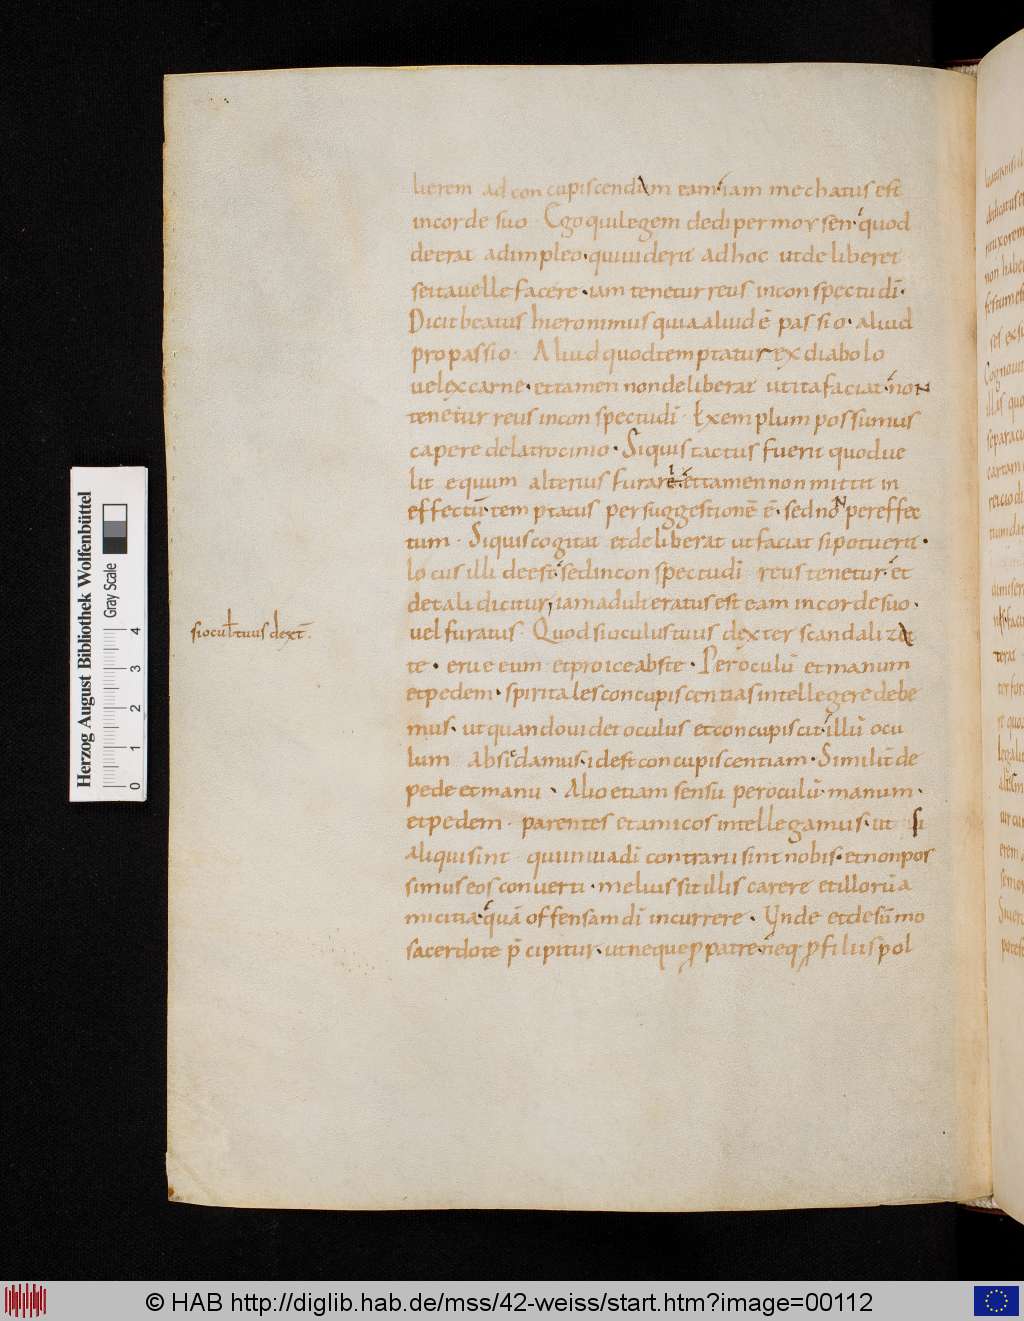 lierem ad concupiscendam eam iam mechatus est
in corde suo · Ego qui legem dedi per moysen · quod
deerat adimpleo · qui uiderit ad hoc ut deliberet
se ita uelle facere · iam tenetur reus in conspectu dī ·
Dicit beatus hieronimus quia aliud ē passio · aliud
propassio · Aliud quod temptatur ex diabolo
uel ex carne · et tamen non deliberat ut ita faciat · non
tenetur reus in conspectu dī · Exemplum possumus
capere de latrocinio · Si quis tactus fuerit quod ue
lit equum alterius furare · et tamen non mittit in
effectū · temptatus per suggestionē ē · sed non per effec
tum · Si quis cogitat et deliberat ut faciat si potuerit ·
locus illi deest · sed in conspectu dī reus tenetur · et
de tali dicitur, iam adulteratus est eam in corde suo ·
siocult tuus dext̄.
uel furatus · Quod si oculus tuus dexter scandalizat
te · erue eum · et proice abs te · Per oculū et manum
et pedem · spiritales concupiscentias intellegere debe
mus · ut quando uidet oculus et concupiscit · illū ocu
lum abscidamus · id est concupiscentiam · Similit̄ de
pede et manu · Alio etiam sensu per oculū · manum ·
et pedem · parentes et amicos intellegamus · ut si
aliqui sint qui in uia dī contrarii sint nobis · et non pos
simus eos conuerti · melius sit illis carere et illorū a
micitia · quā offensam dī incurrere · Unde et de sūmo
sacerdote p̄cipitur · ut neque ꝓ patre · neq ꝓ filiis pol
Herzog August Bibliothek Wolfenbüttel
Gray Scale
0 1 2 3 4
© HAB http://diglib.hab.de/mss/42-weiss/start.htm?image=00112